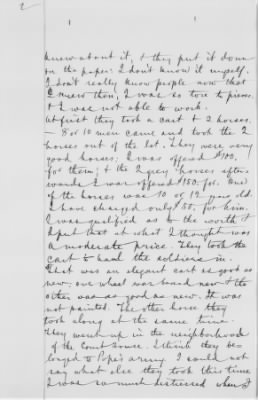 2
know about it, & they put it down
on the paper. I don't know it myself.
I don't really know people now that
I knew then, I was so tore to pieces
& I was not able to work.
At first they took a cart & 2 horses.
- 8 or 10 men came and took the 2
horses out of the lot. They were very
good horses; I was offered $100,
for them; & the 2 grey horses after-
wards I was offered $150. for. One
of the horses was 10 or 12 years old
I have charged only $50, for him.
I was qualified as to the worth &
I put that at what I thought was
a moderate price. They took the
cart to haul the soldiers in.
That was an elegant cart as good as
new; one wheel was brand new & the
other was as good as new. It was
not painted. The other horse they
took along at the same time.
They went up in the neighborhood
of the Court House. I think they be-
longed to Pope's army. I could not
say what else they took this time
I was so much distressed when I